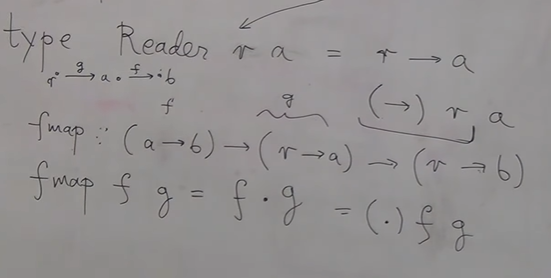 type Reader r a = r → a
r —g→ a • —f→ • b
f g (→) r a
fmap :: (a → b) → (r → a) → (r → b)
fmap f g = f . g = (.) f g